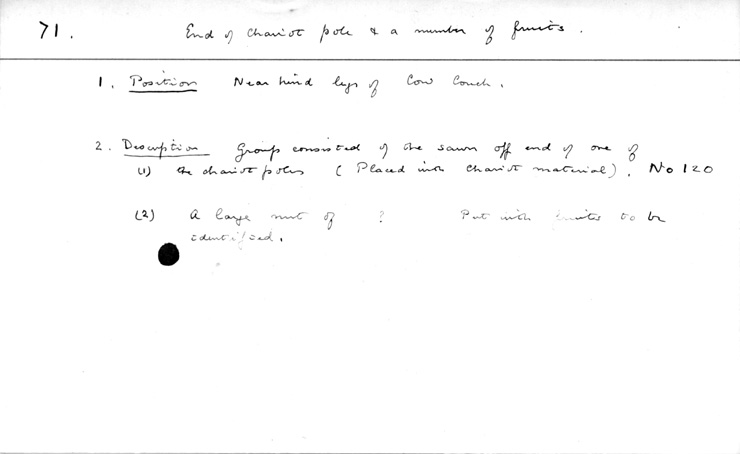 71. End of chariot pole & a number of fruits.
1. Position Near hind legs of Cow Couch.
2. Description Group consisted of the sawn off end of one of
(1) the chariot poles (Placed with chariot material). No 120
(2) A large nut of ? Put with fruits to be
identified.